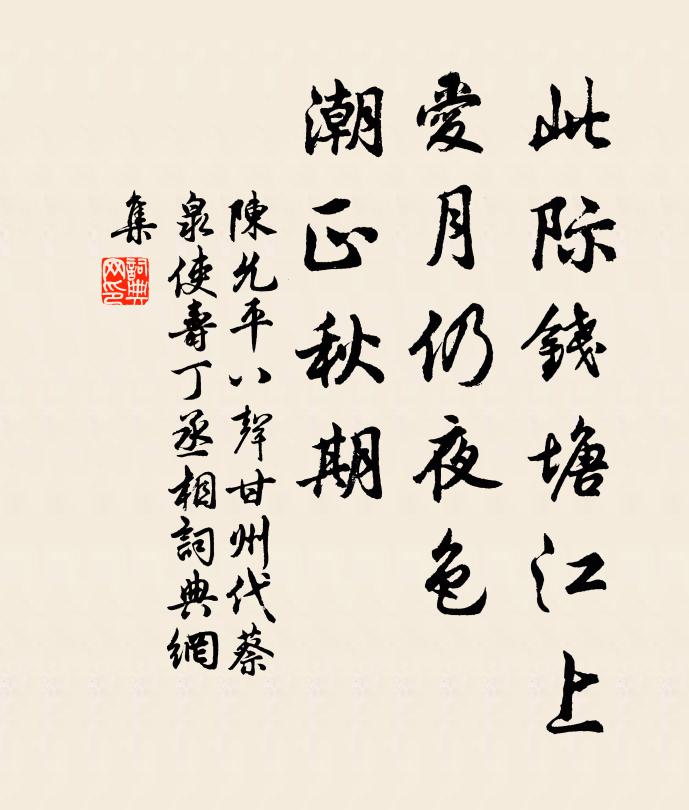 此际錢塘江上
愛月仍夜色
潮正秋期
陳允平八聲甘州代蔡
泉使壽丁丞相詞典網
集
詞典
网印